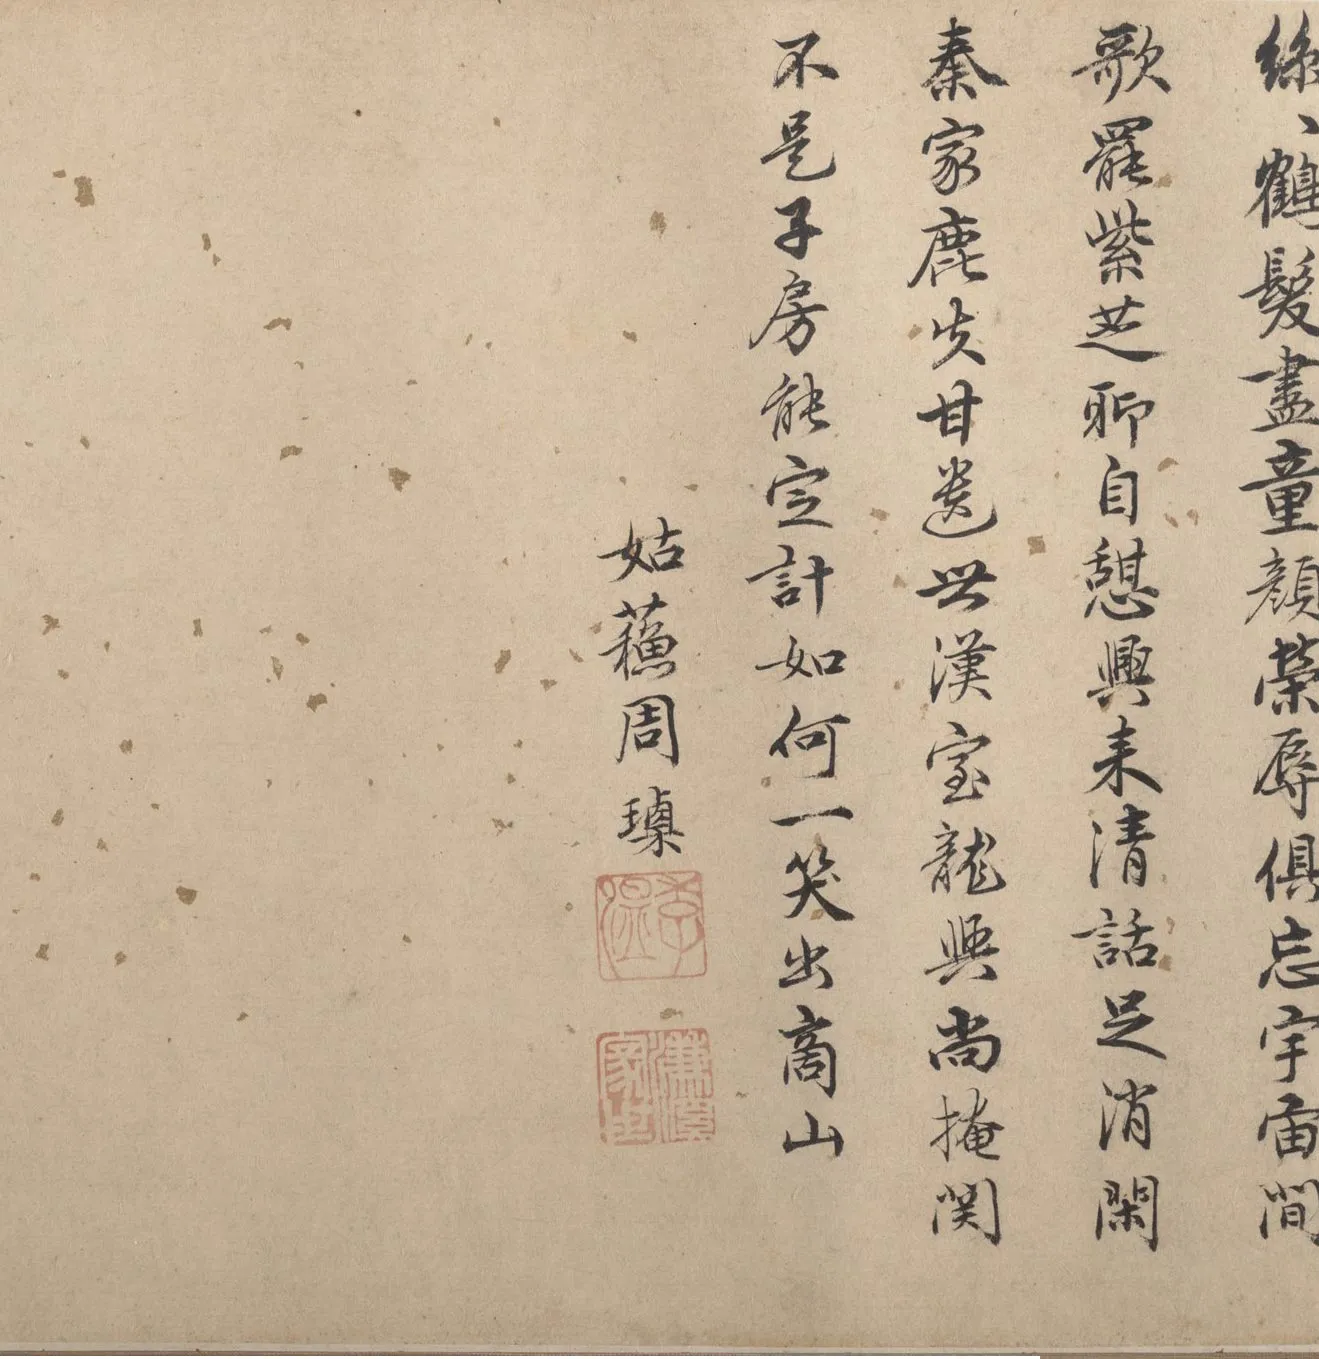 絲〻鶴髮盡童顏榮辱俱忘宇宙間
歌罷紫芝聊自憩興来清話足消閑
秦家鹿失甘遺世漢室龍興尚掩関
不是子房能定計如何一笑出商山
姑蘓周
季温
濂溪家世